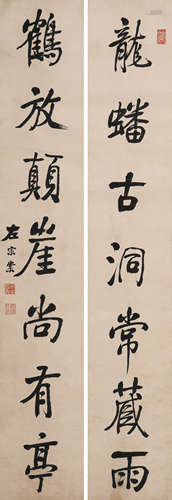 龍蟠古洞常藏雨
鶴放顛崖尚有亭
左宗棠